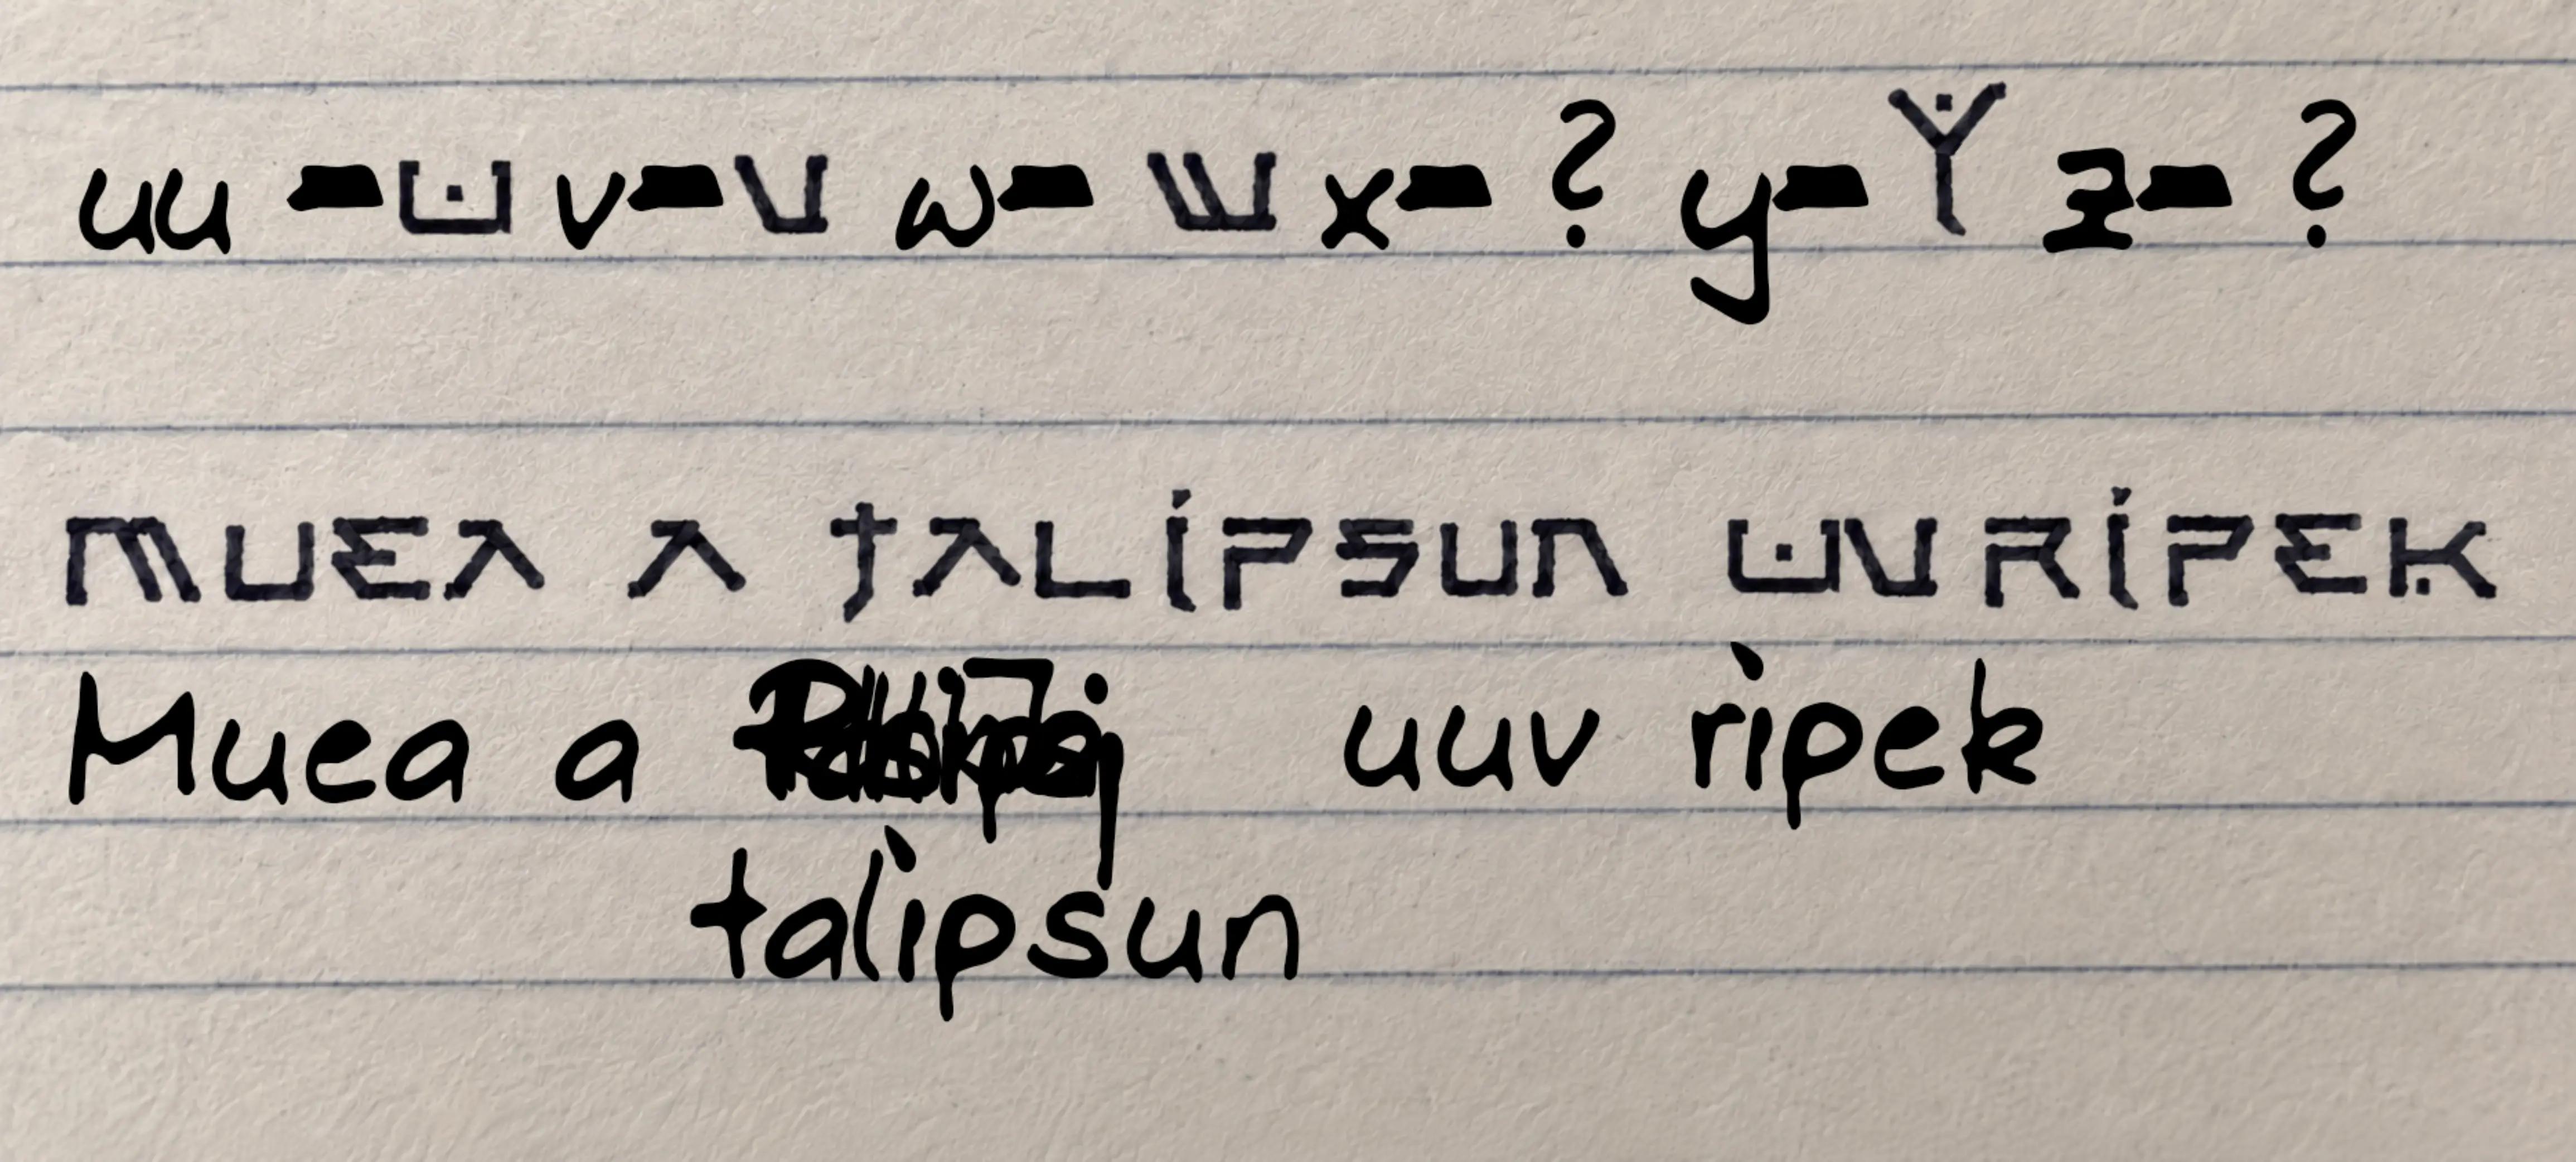 uu - ய v - V w - W x - ? y - Ÿ z - ?
MUEA A TALIPSUN UUV RIPEK
Muea a uuv ripek
talipsun